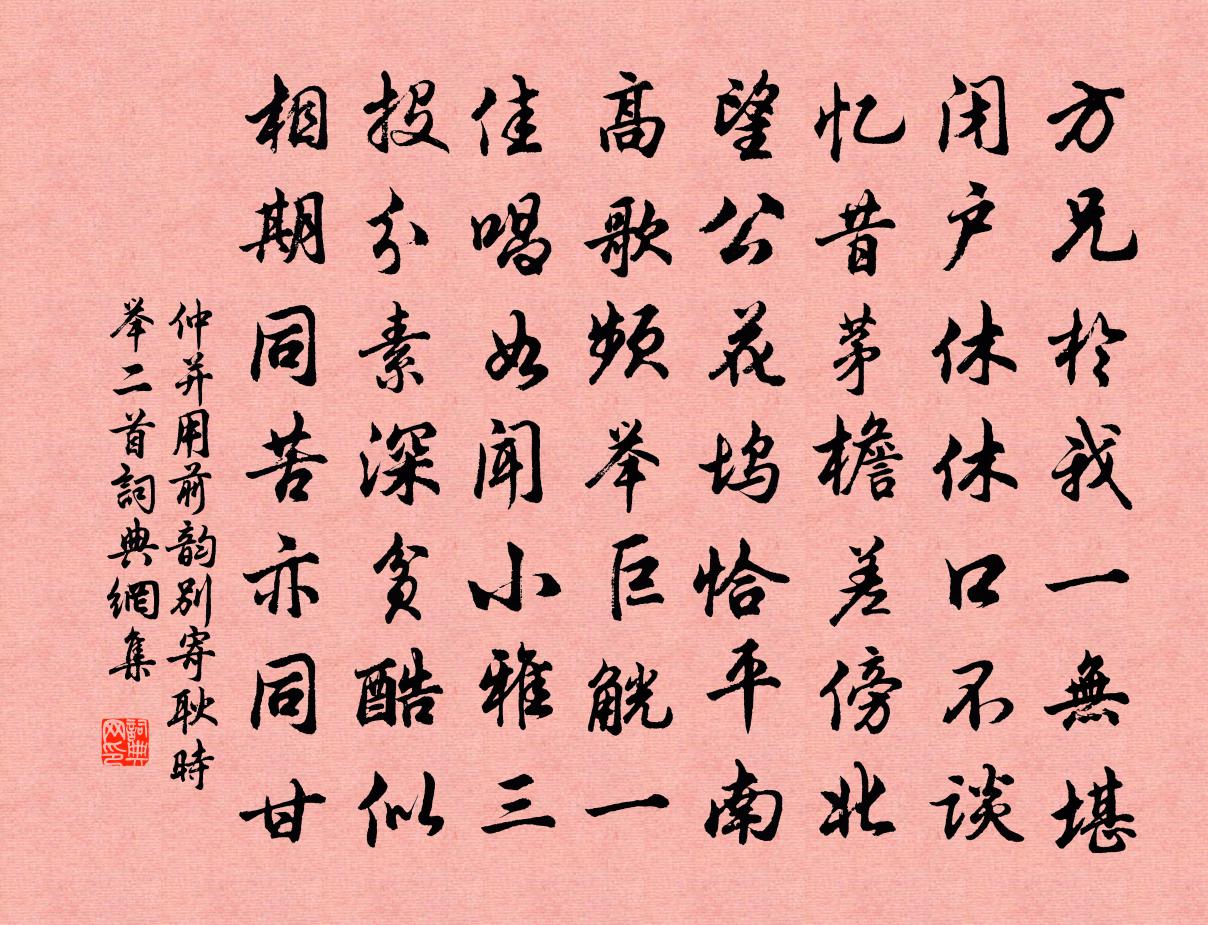 方兄於我一無堪
闭户休休口不谈
忆昔茅檐差傍北
望公花坞恰平南
高歌频举巨觥一
佳唱如闻小雅三
投分素深贫酷似
相期同苦亦同甘
仲并用前韵别寄耿時
举二首詞典網集
詞典网印